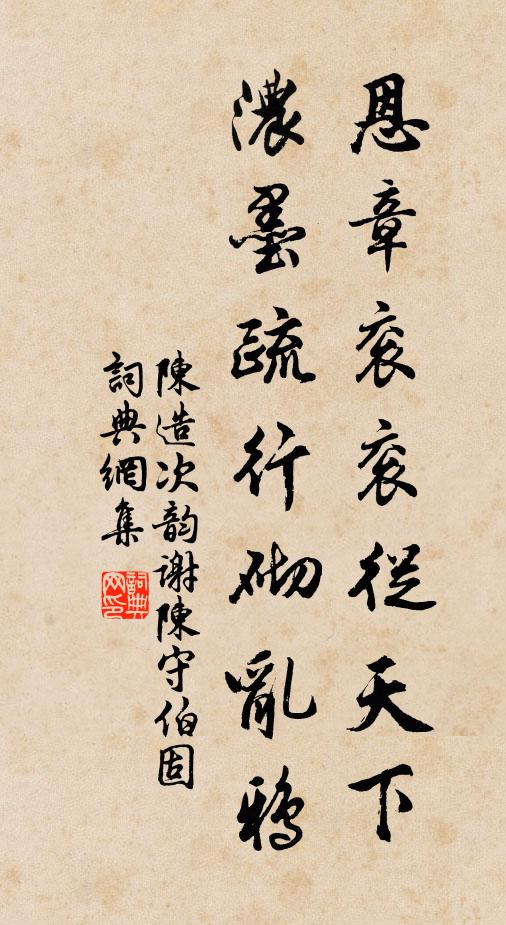 恩章衮衮從天下
濃墨疏行砌亂鴉
陳造次韵謝陳守伯固
詞典網集
詞典网印